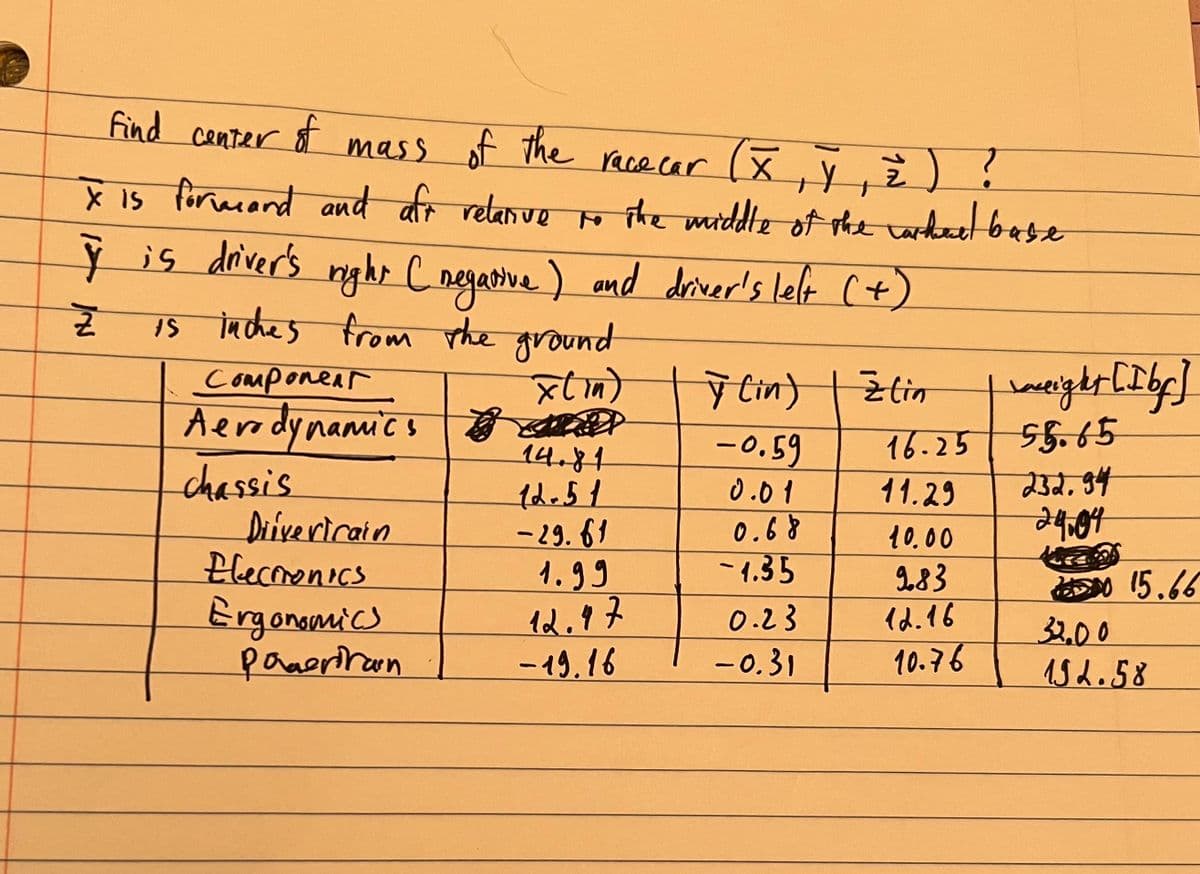 Find center of mass of the racecar (x̄, ȳ, z̄) ?
x̄ is forward and aft relative to the middle of the base
ȳ is driver's right (negative) and driver's left (+)
z̄ is inches from the ground
Component x̄(in) ȳ (in) z̄(in weight [Ibf]
Aerodynamics 14.81 -0.59 16.25 55.65
chassis 12.51 0.01 11.29 232.94
Drivertrain -29.61 0.68 10.00 24.04
Electronics 1.99 -1.35 9.83 15.66
Ergonomics 12.97 0.23 12.16 32.00
powertrain -19.16 -0.31 10.76 192.58